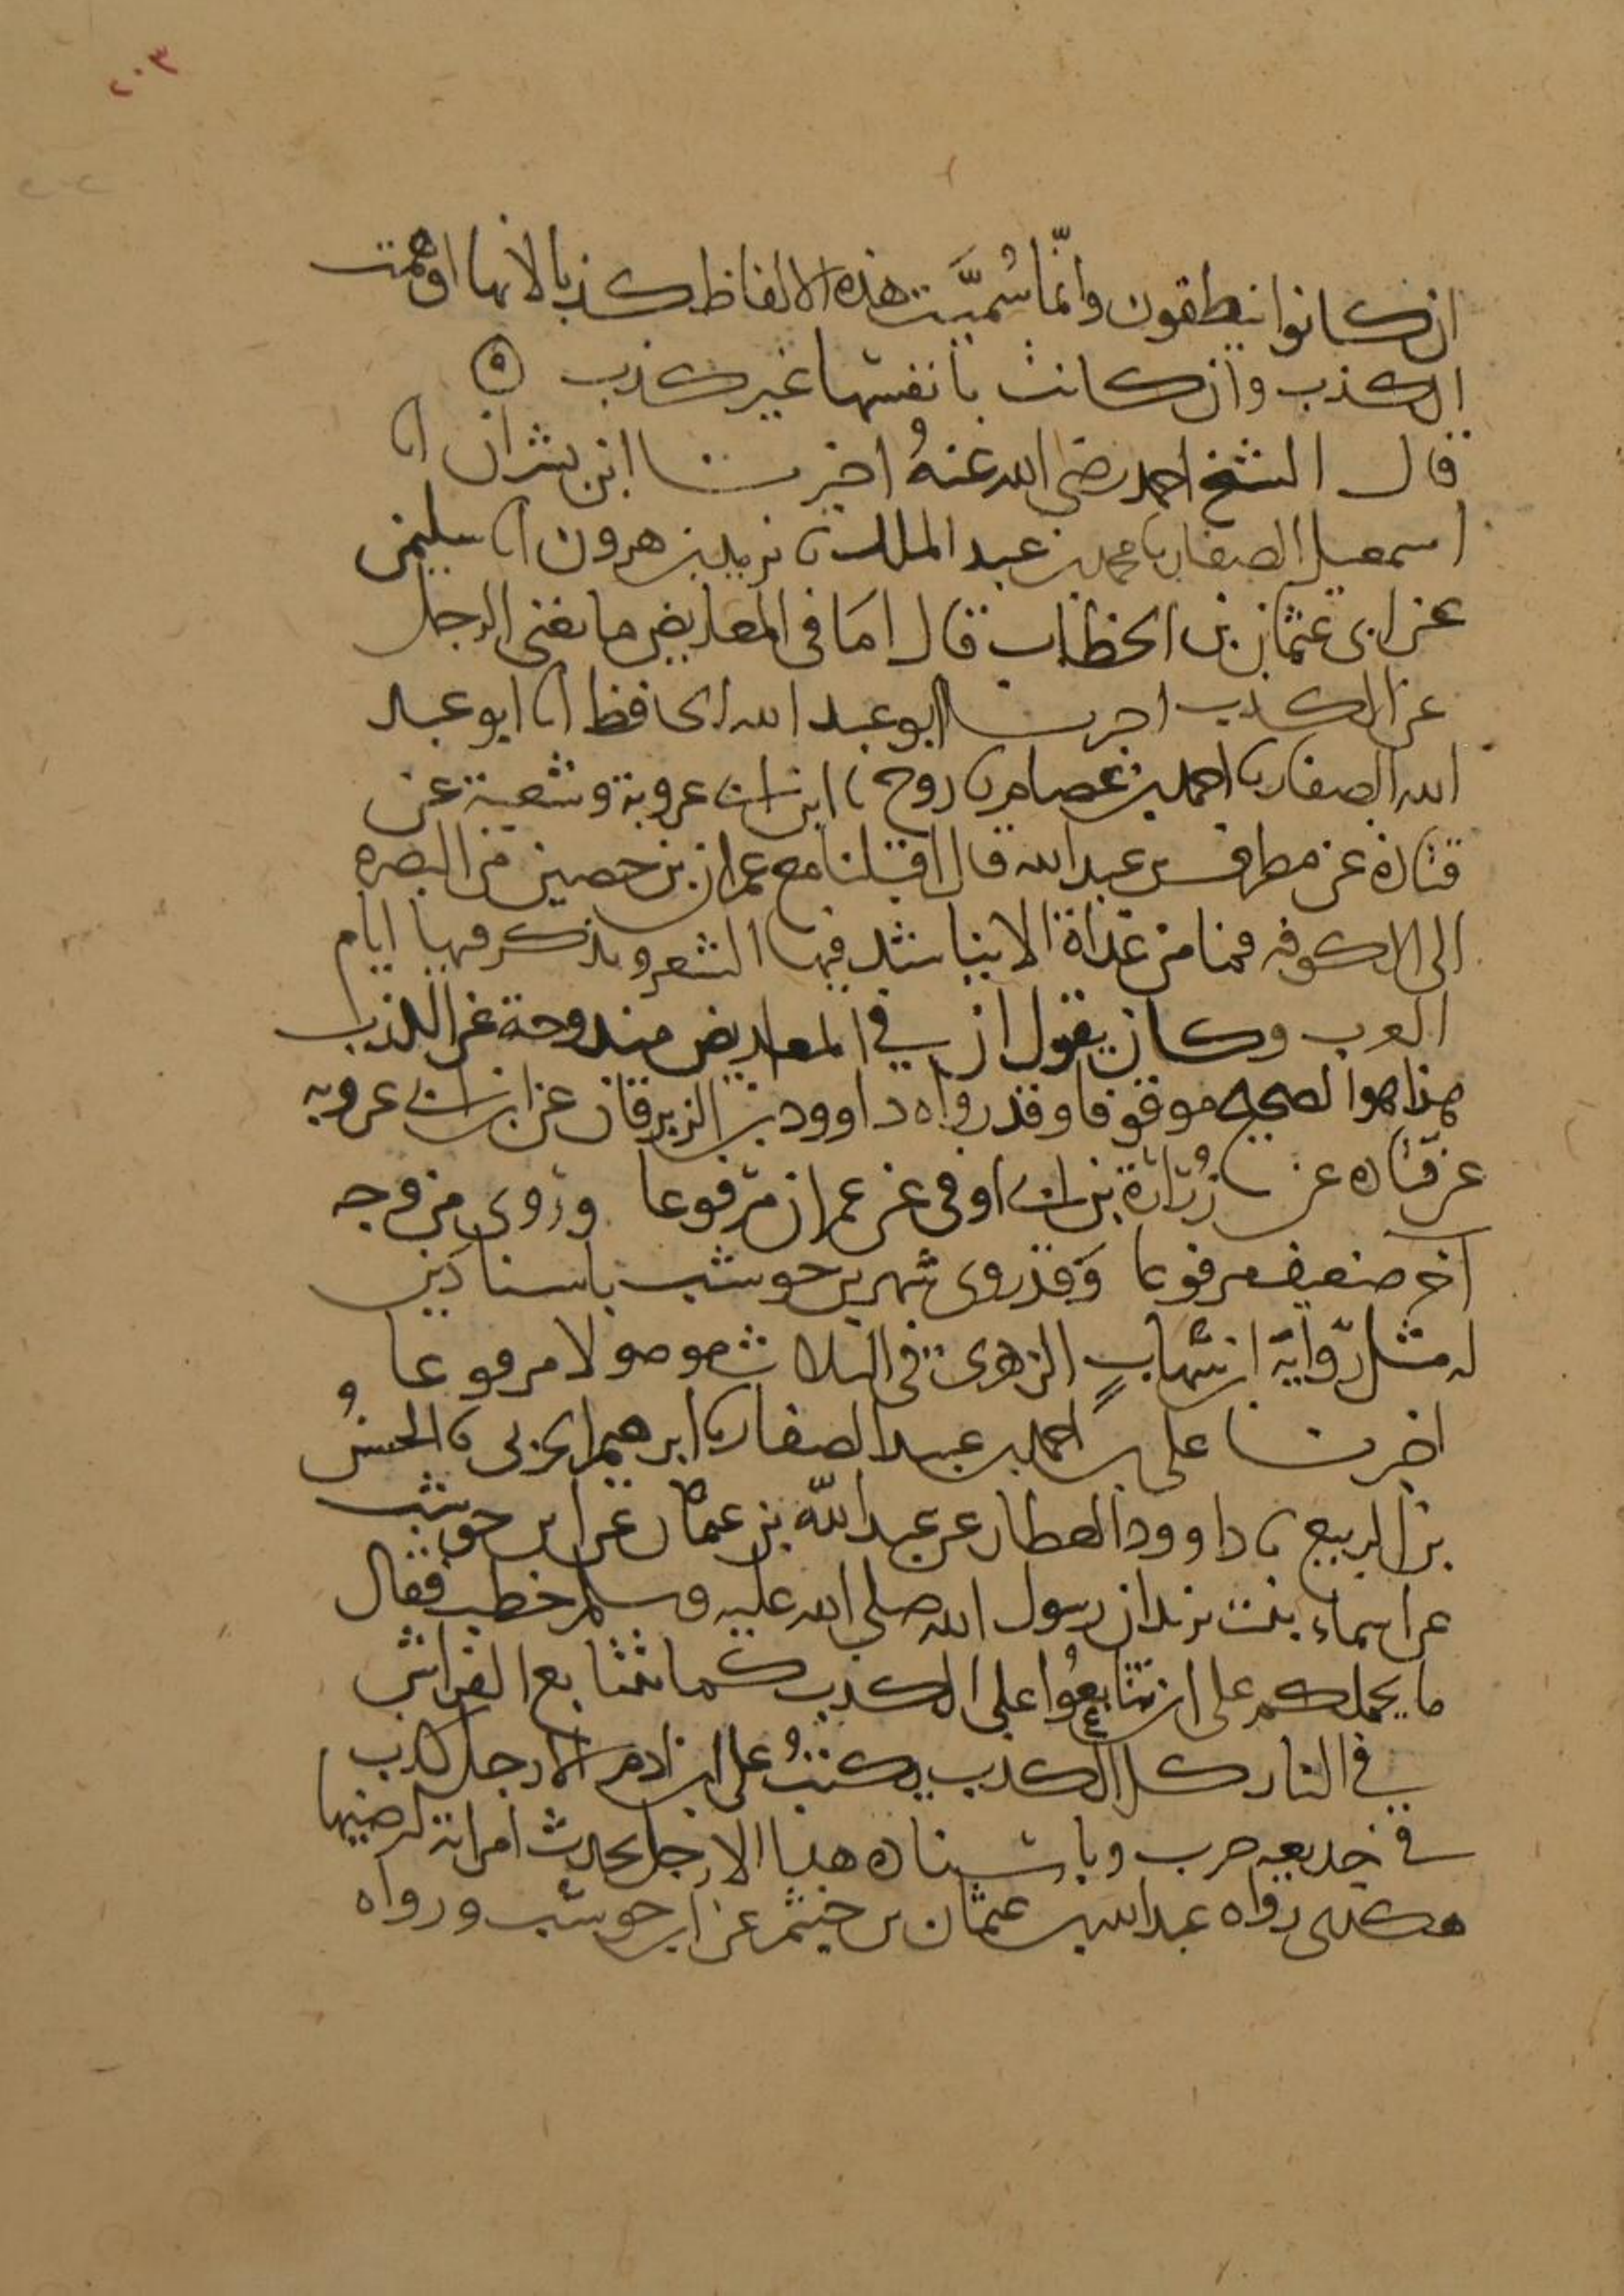 ٢٠٣
٢٠٢
ان كانوا ينطقون وانّما سُمّيَت هذه الالفاظ كذبا لانها اوهمت
الكذب وان كانت بانفسها غير كذب ه
قال الشيخ احمد رضي الله عنهُ اخبرنا ابن بشران انا
اسمعيل الصفار نا محمد بن عبد الملك نا يزيد بن هرون انا سليمن
عن ابي عثمان بن الخطاب قال امَا في المعاريض ما يغني الرجل
عن الكذب اخبرنا ابو عبد الله الحافظ انا ابو عبد
الله الصفار نا احمد بن عصام نا روح نا ابن ابي عروبة وشعبة عن
قتادة عن مطرف بن عبد الله قال اقبلنا مع عمران بن حصين من البصره
الى الكوفه فما من غداة الا يناشد فيها الشعر ويذكر فيها ايام
العرب وكان يقول ان في المعاريض مندوحة عن الكذب
هذا هو الصحيح موقوفا وقد رواه داوود بن الزبرقان عن ابن ابي عروبه
عن قتاده عن زُرَارَة بن ابي اوفى عن عمران مرفوعا وروي من وجه
اخر ضعيف مرفوعا وَقد روى شهر بن حوشب باسنادين
له مثل رواية ابن شهابٍ الزهري في الثلاث موصولا مرفوعا
اخبرنا علي بن احمد بن عبيد الصفار نا ابرهيم الحربي نا الحسنُ
بن الربيع نا داوود العطار عن عبد الله بن عثمان عن ابن حوشب
عن اسماء بنت يزيد ان رسول الله صلى الله عليه وسلم خطب فقال
ما يحملكم على ان تتابعُوا على الكذب كما تتتابع الفراش
في النار كل الكذب يكتبُ على ابن ادم الا رجل كذب
في خديعه حرب وباسناده هذا الا رجل يحدث امراته ليرضيها
هكذى رواه عبد الله بن عثمان بن خيثم عن ابن حوشب ورواه